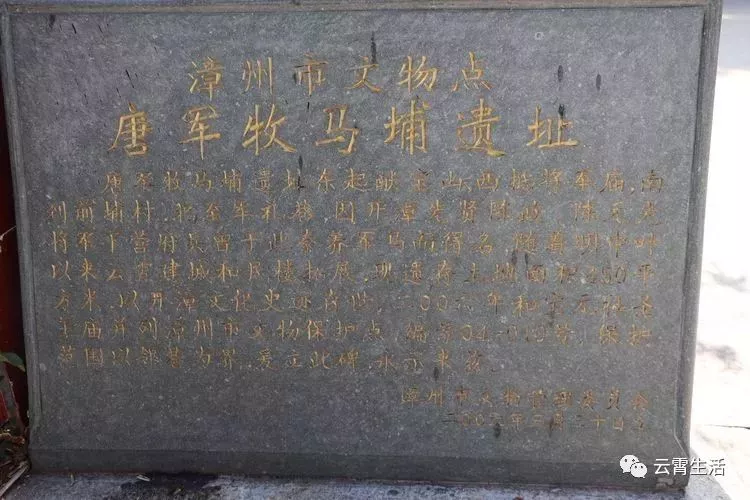 漳州市文物点
唐军牧马埔遗址
唐军牧马埔遗址,东起 山,西抵将军庙,南
到前埔村,北 军礼巷,因开漳先贤陈政、陈元光
将军下营府兵曾于此 养军马而得名,随着明中叶
以来云霄建城和民楼拓展,现遗存土地面积250平
方米,以开漳文化史迹 世,二00六年和
王庙并列漳州市文物保护点,编号04-010号,保护
范围以 为界,爰立此碑,永 来兹.
漳州市文物管理委员会
二00六年三月二十日立
云霄生活